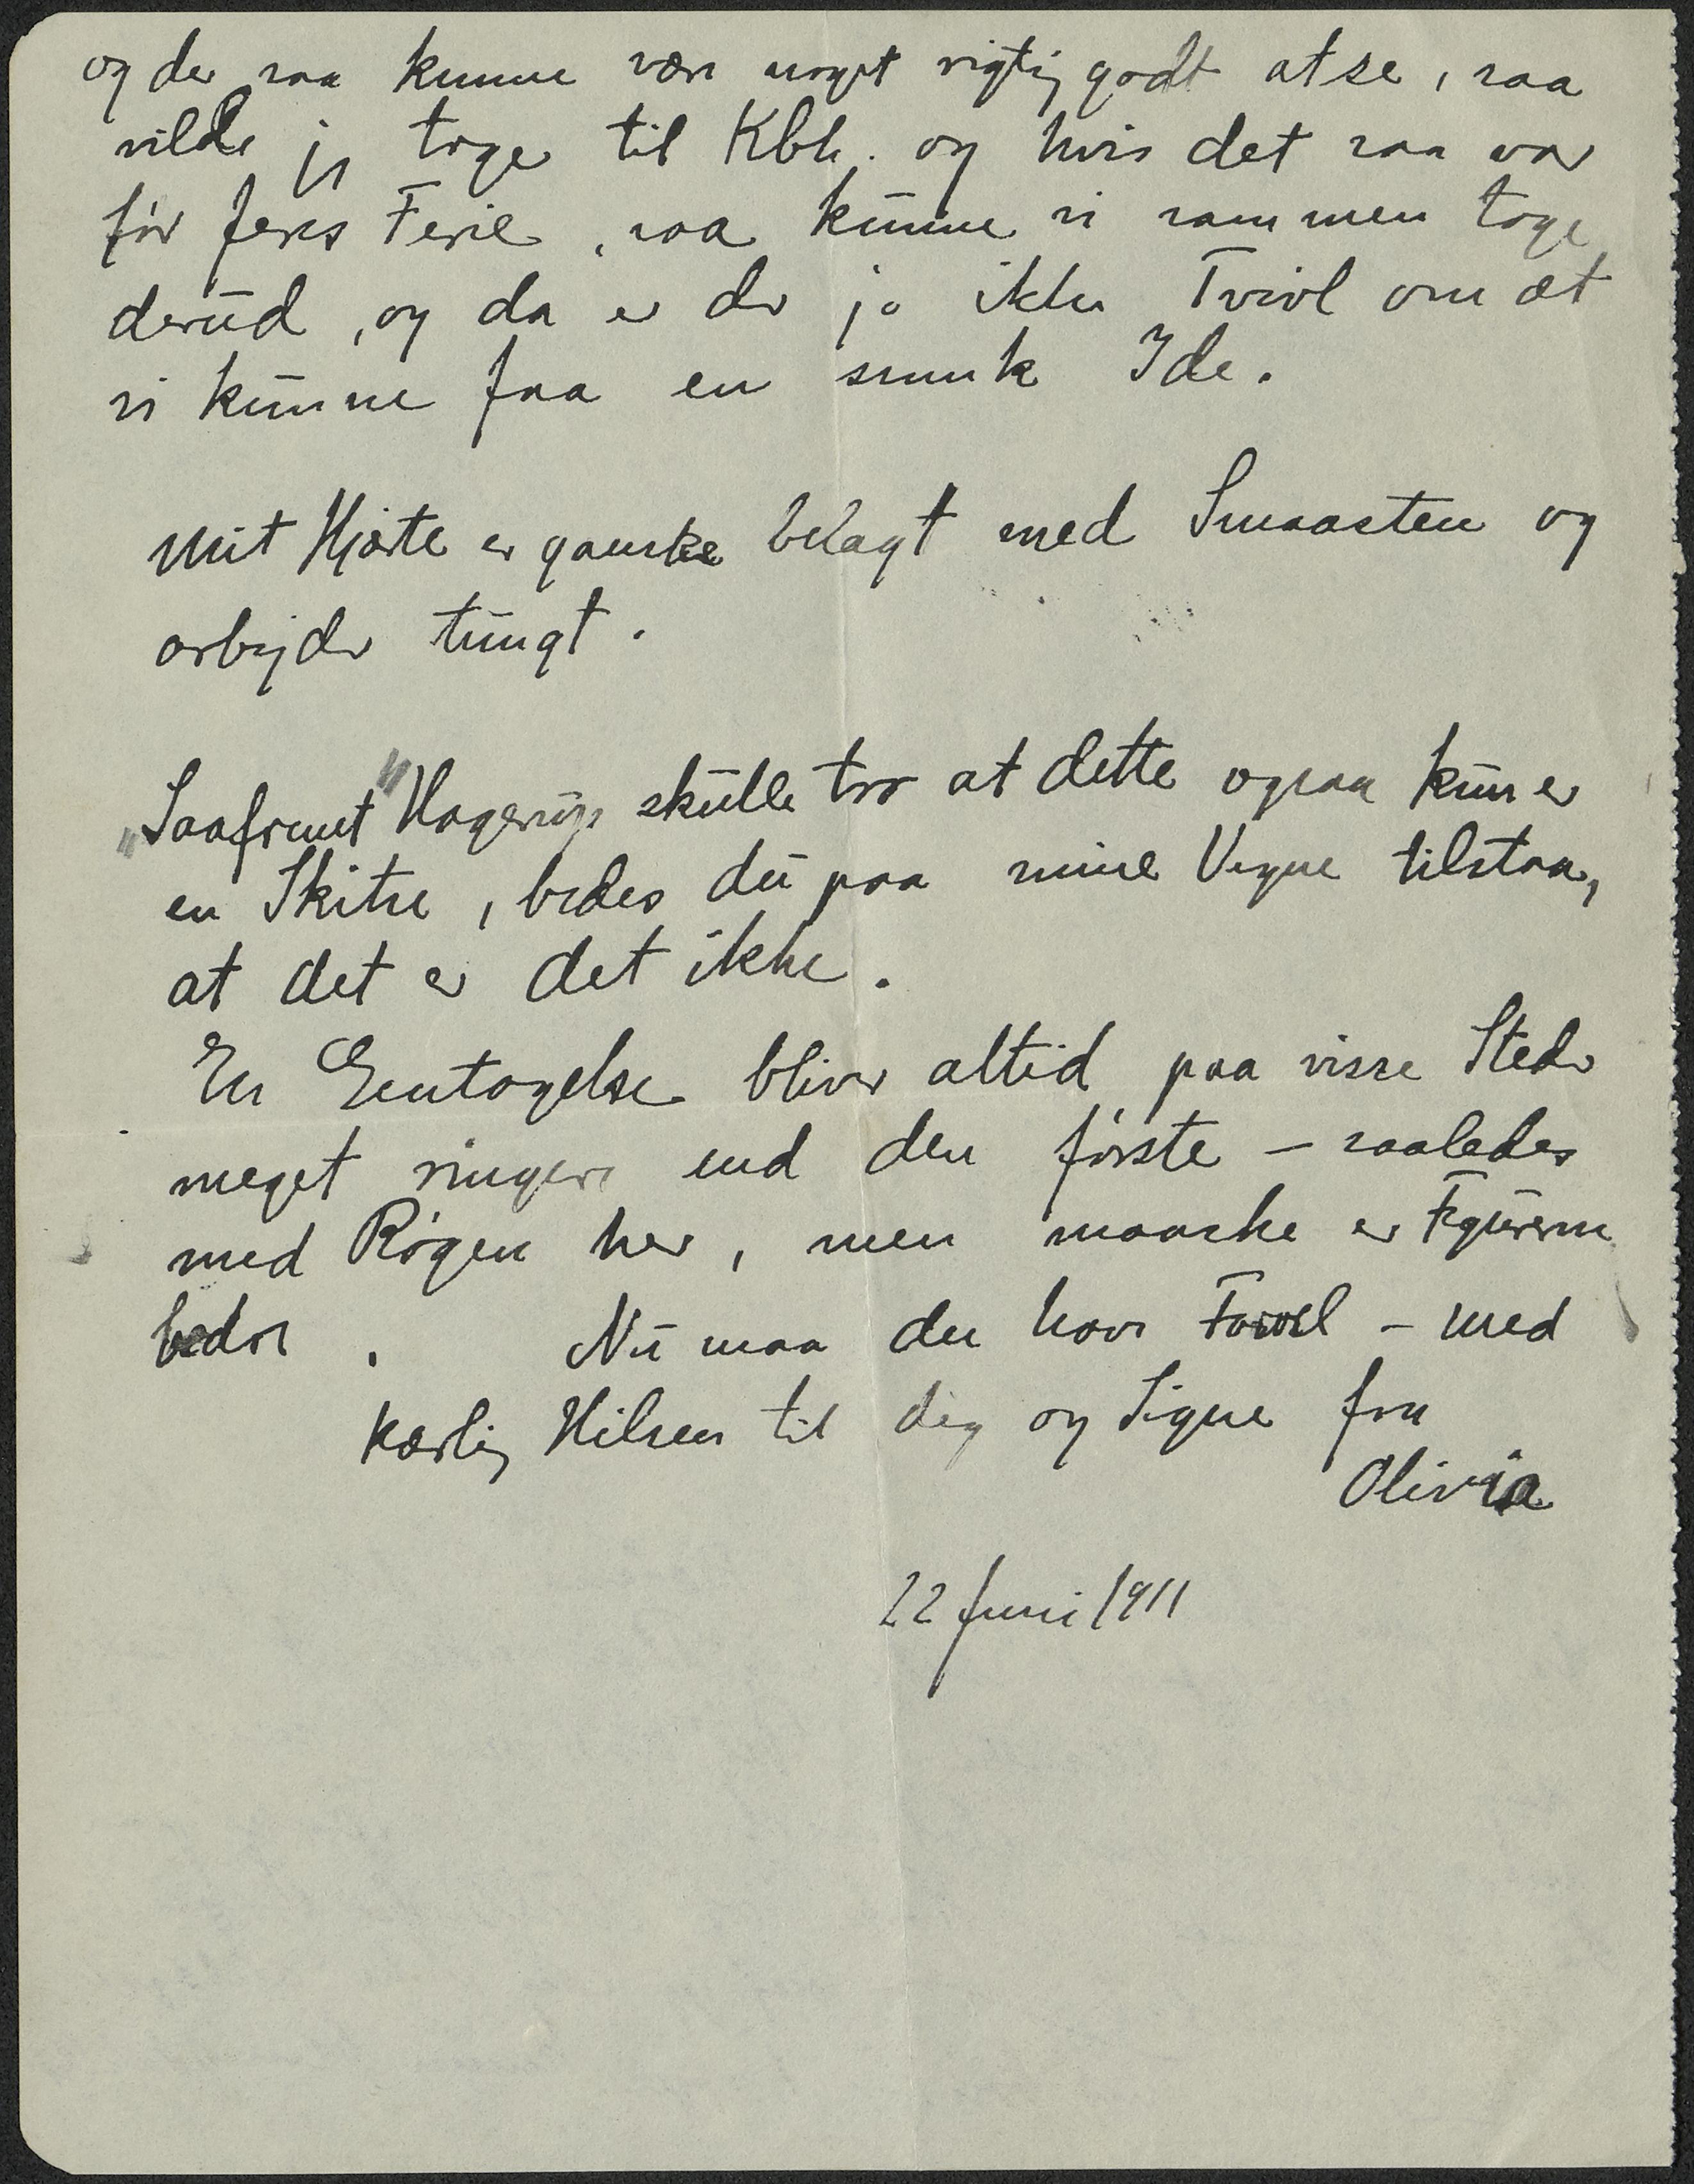 og der saa kunne være noget rigtig godt at se, saa
vilde jeg tage til Kbh. og hvis det saa var
før Jeres Ferie, saa kunne vi sammen tage
derud, og da er der jo ikke Tvivl om at
vi kunne faa en smuk Ide.
Mit Hjærte er ganske belagt med Smaasten og
arbejder tungt.
Hagerup skulle tro at dette ogsaa kun er
en Skitse, bedes du paa mine Vegne tilstaa,
at det er det ikke.
En Gentagelse bliver altid paa visse Steder
meget ringere end den første – saaledes
med Røgen her, men maaske er Figurerne
bedre. Nu maa du have Farvel – med
Kærlig Hilsen til dig og Signe fra
Olivia
22 Juni 1911